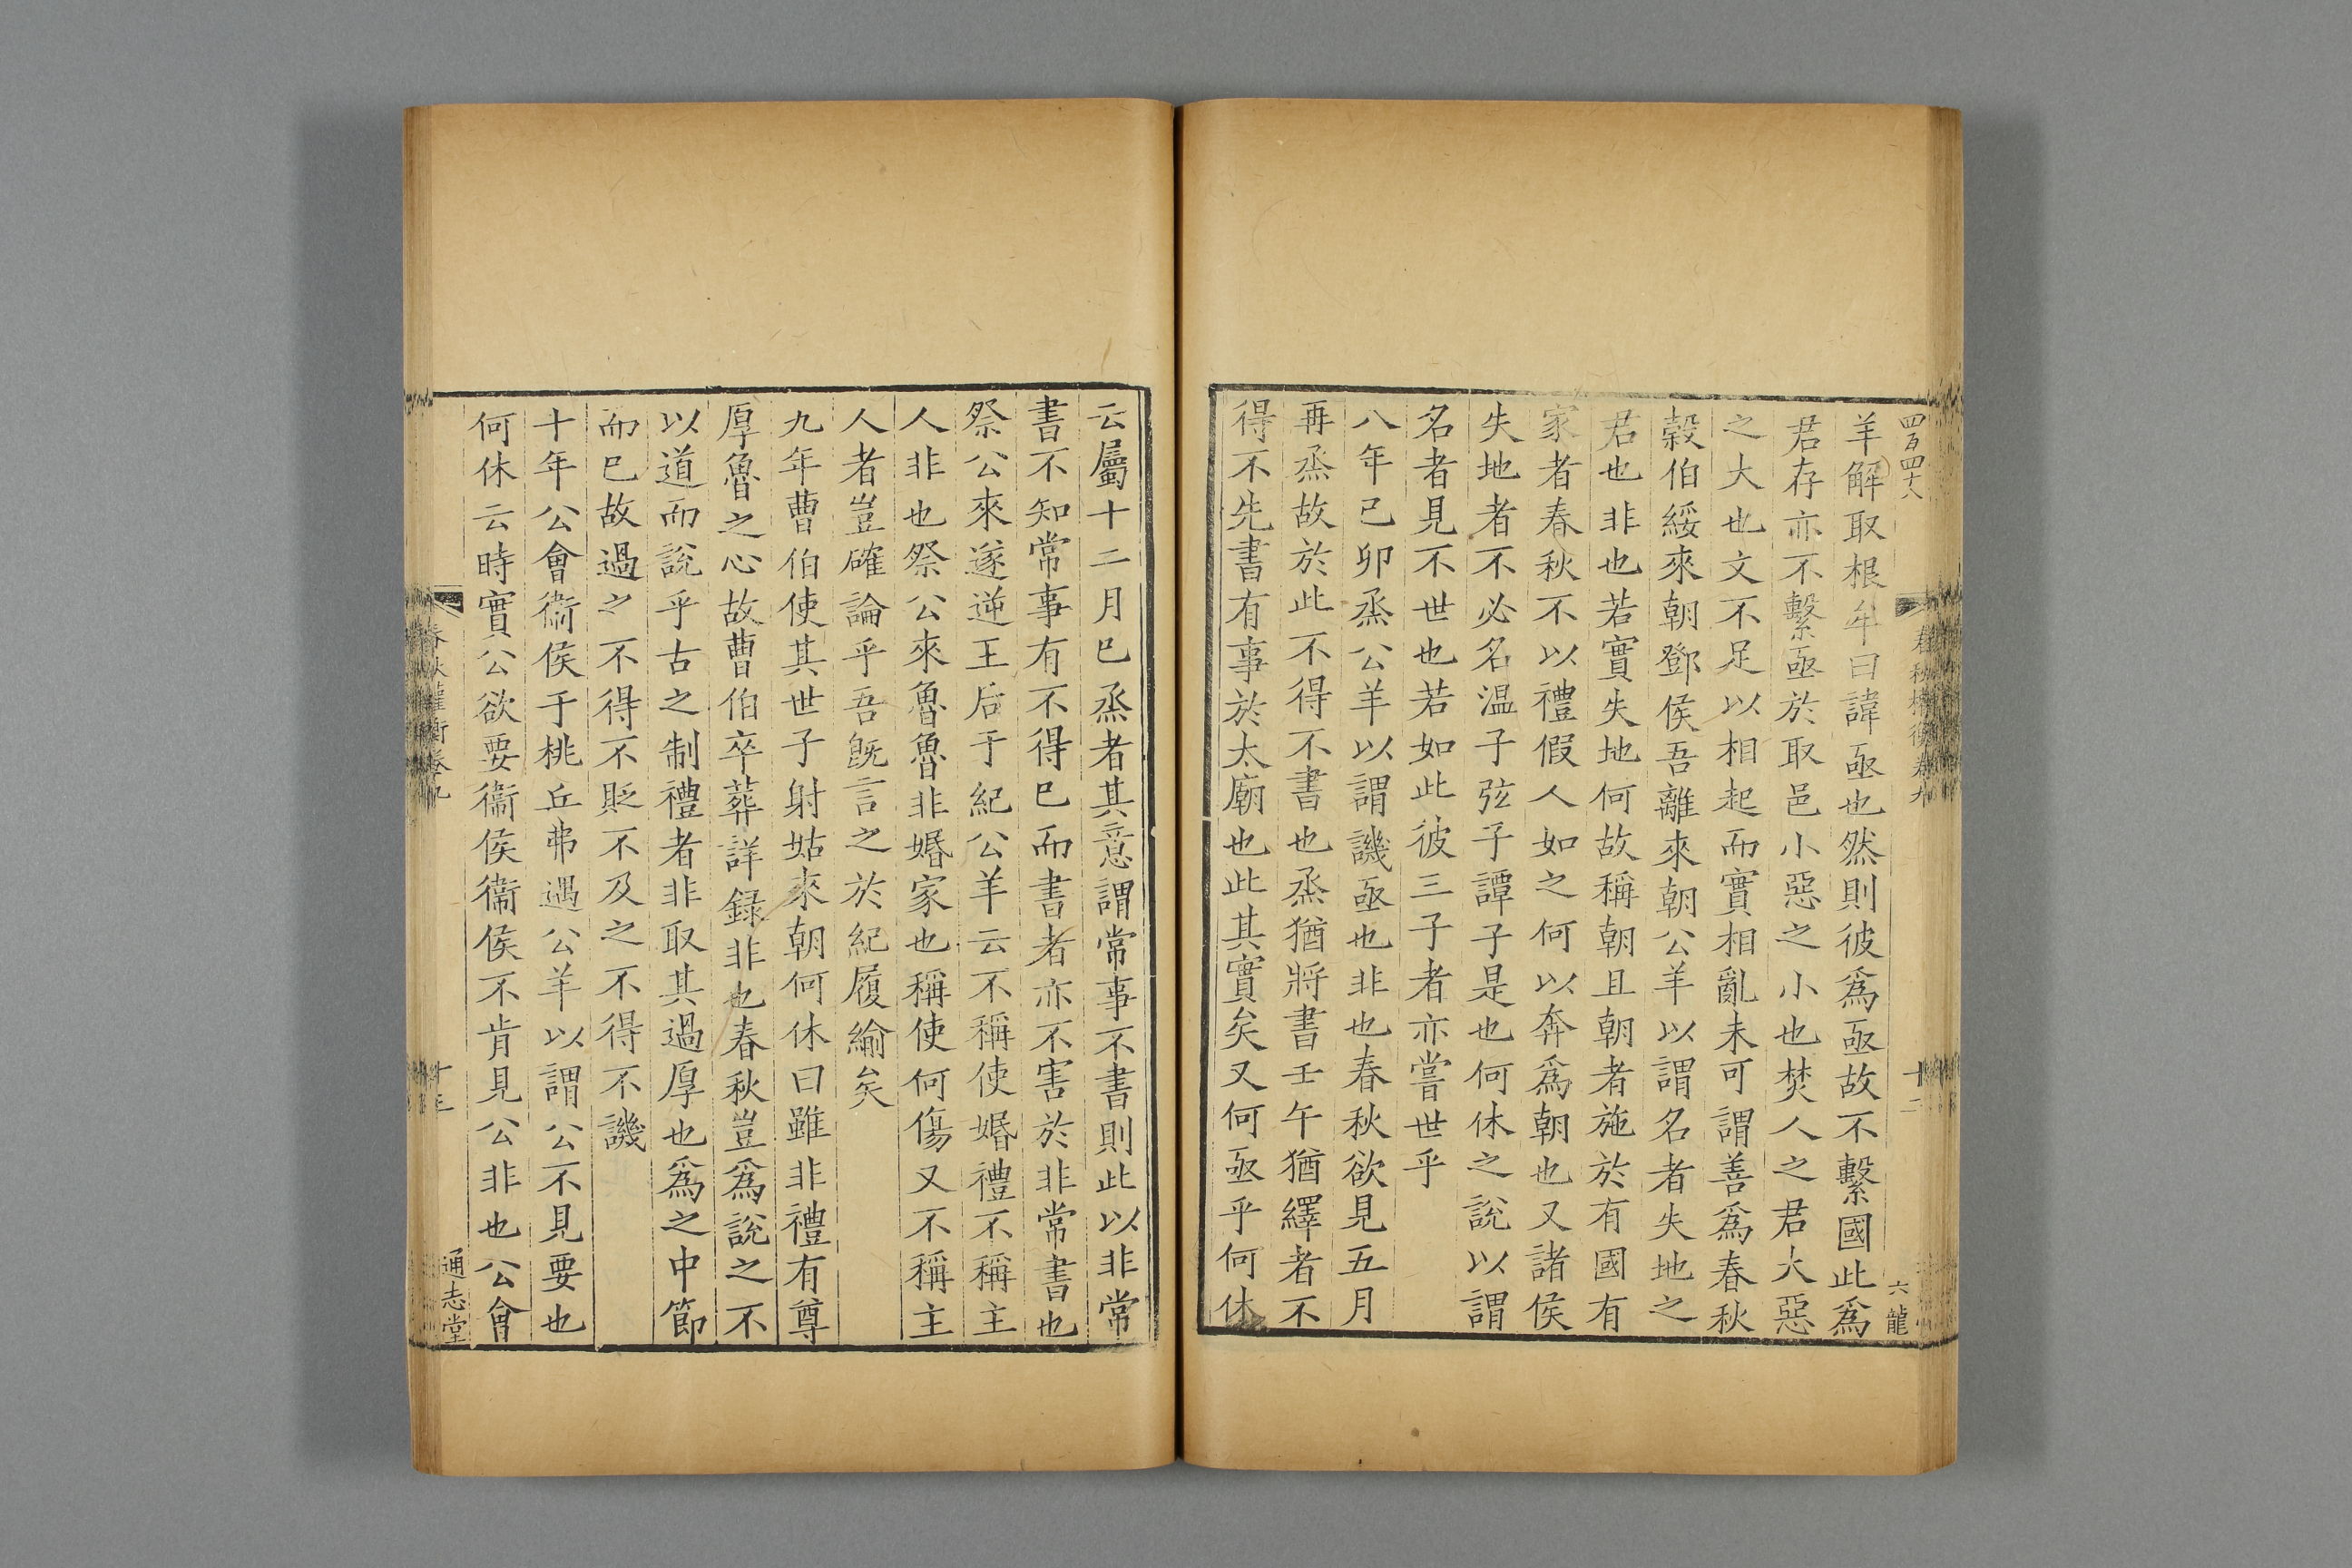 四百四十八
春秋權衡卷九
十二
六龍
羊解取根牟曰諱亟也然則彼爲亟故不繫國此爲
君存亦不繫亟於取邑小惡之小也焚人之君大惡
之大也文不足以相起而實相亂未可謂善爲春秋
榖伯綏來朝鄧侯吾離來朝公羊以謂名者失地之
君也非也若實失地何故稱朝且朝者施於有國有
家者春秋不以禮假人如之何以奔爲朝也又諸侯
失地者不必名温子弦子譚子是也何休之說以謂
名者見不世也若如此彼三子者亦嘗世乎
八年己卯烝公羊以謂譏亟也非也春秋欲見五月
再烝故於此不得不書也烝猶將書壬午猶繹者不
得不先書有事於太廟也此其實矣又何亟乎何休
云屬十二月已烝者其意謂常事不書則此以非常
書不知常事有不得已而書者亦不害於非常書也
祭公來遂逆王后于紀公羊云不稱使婚禮不稱主
人非也祭公來魯魯非婚家也稱使何傷又不稱主
人者豈確論乎吾旣言之於紀履緰矣
九年曹伯使其世子射姑來朝何休曰雖非禮有尊
厚魯之心故曹伯卒葬詳録非也春秋豈爲說之不
以道而說乎古之制禮者非取其過厚也爲之中節
而已故過之不得不貶不及之不得不譏
十年公會衞侯于桃丘弗遇公羊以謂公不見要也
何休云時實公欲要衞侯衞侯不肯見公非也公會
春秋權衡卷九
十三
通志堂